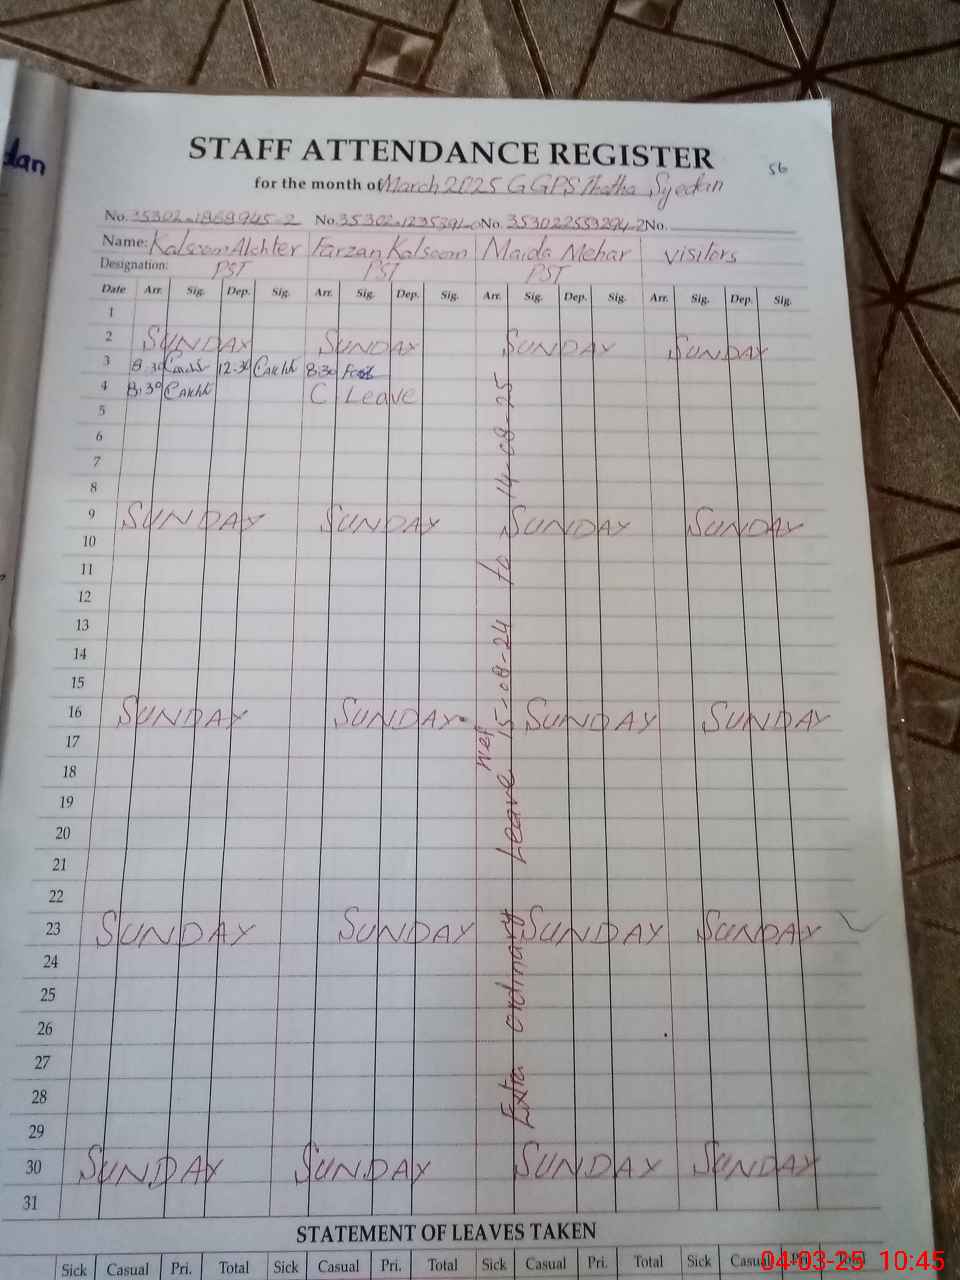 dan
STAFF ATTENDANCE REGISTER
56
for the month of March 2025 GGPS Thatha Syedan
No. 35302-1868945-2 No. 35302-1235391-0 No. 353022553294-2 No.
Name: Kalsoom Akhter Farzan Kalsoom Maida Mehar visitors
Designation: PST PST PST
Date Arr. Sig. Dep. Sig. Arr. Sig. Dep. Sig. Arr. Sig. Dep. Sig. Arr. Sig. Dep. Sig.
1
2 SUNDAY SUNDAY SUNDAY SUNDAY
3 8:30 12-30 8:30
4 8:30 C Leave
5
6
7
8
9 SUNDAY SUNDAY SUNDAY SUNDAY
10
11
12
13
14
15
16 SUNDAY SUNDAY SUNDAY SUNDAY
17
18
19
20
21
22
23 SUNDAY SUNDAY SUNDAY SUNDAY
24
25
26
27
28
29
30 SUNDAY SUNDAY SUNDAY SUNDAY
31
Extra ordinary Leave wef 15-08-24 to 14-08-25
STATEMENT OF LEAVES TAKEN
Sick Casual Pri. Total Sick Casual Pri. Total Sick Casual Pri. Total Sick Casual Pri. Total
04-03-25 10:45